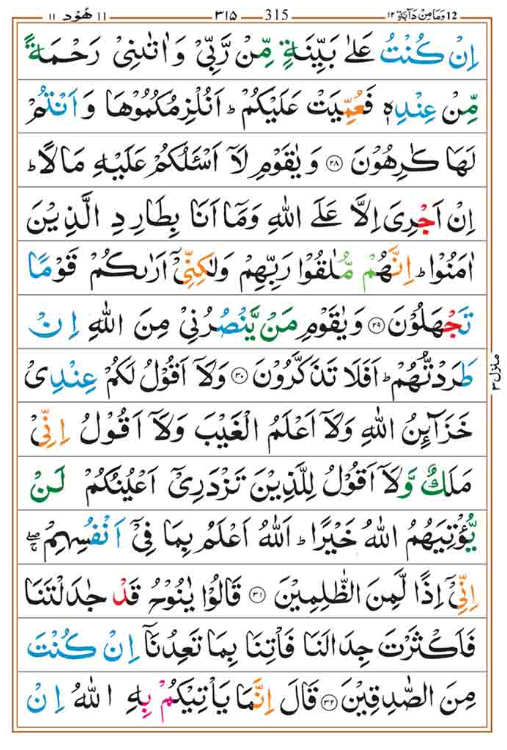 ١١ هُوْد ١١ ٣١٥ 315 ١٢ وَمَا مِنْ دَآبَّةٍ 12
اِنْ كُنْتُ عَلٰى بَيِّنَةٍ مِّنْ رَّبِّىْ وَاٰتٰىنِىْ رَحْمَةً
مِّنْ عِنْدِهٖ فَعُمِّيَتْ عَلَيْكُمْ ؕ اَنُلْزِمُكُمُوْهَا وَاَنْتُمْ
لَهَا كٰرِهُوْنَ ﴿۲۸﴾ وَيٰقَوْمِ لَاۤ اَسْـَٔلُكُمْ عَلَيْهِ مَالًا ؕ
اِنْ اَجْرِىَ اِلَّا عَلَى اللّٰهِ وَمَاۤ اَنَا بِطَارِدِ الَّذِيْنَ
اٰمَنُوْا ؕ اِنَّهُمْ مُّلٰقُوْا رَبِّهِمْ وَلٰكِنِّىْۤ اَرٰىكُمْ قَوْمًا
تَجْهَلُوْنَ ﴿۲۹﴾ وَيٰقَوْمِ مَنْ يَّنْصُرُنِىْ مِنَ اللّٰهِ اِنْ
طَرَدْتُّهُمْ ؕ اَفَلَا تَذَكَّرُوْنَ ﴿۳۰﴾ وَلَاۤ اَقُوْلُ لَكُمْ عِنْدِىْ
خَزَآئِنُ اللّٰهِ وَلَاۤ اَعْلَمُ الْغَيْبَ وَلَاۤ اَقُوْلُ اِنِّىْ
مَلَكٌ وَّلَاۤ اَقُوْلُ لِلَّذِيْنَ تَزْدَرِىْۤ اَعْيُنُكُمْ لَنْ
يُّؤْتِيَهُمُ اللّٰهُ خَيْرًا ؕ اَللّٰهُ اَعْلَمُ بِمَا فِىْۤ اَنْفُسِهِمْ ۖۚ
اِنِّىْۤ اِذًا لَّمِنَ الظّٰلِمِيْنَ ﴿۳۱﴾ قَالُوْا يٰنُوْحُ قَدْ جٰدَلْتَنَا
فَاَكْثَرْتَ جِدَالَنَا فَاْتِنَا بِمَا تَعِدُنَاۤ اِنْ كُنْتَ
مِنَ الصّٰدِقِيْنَ ﴿۳۲﴾ قَالَ اِنَّمَا يَاْتِيْكُمْ بِهِ اللّٰهُ اِنْ
منزل ٣